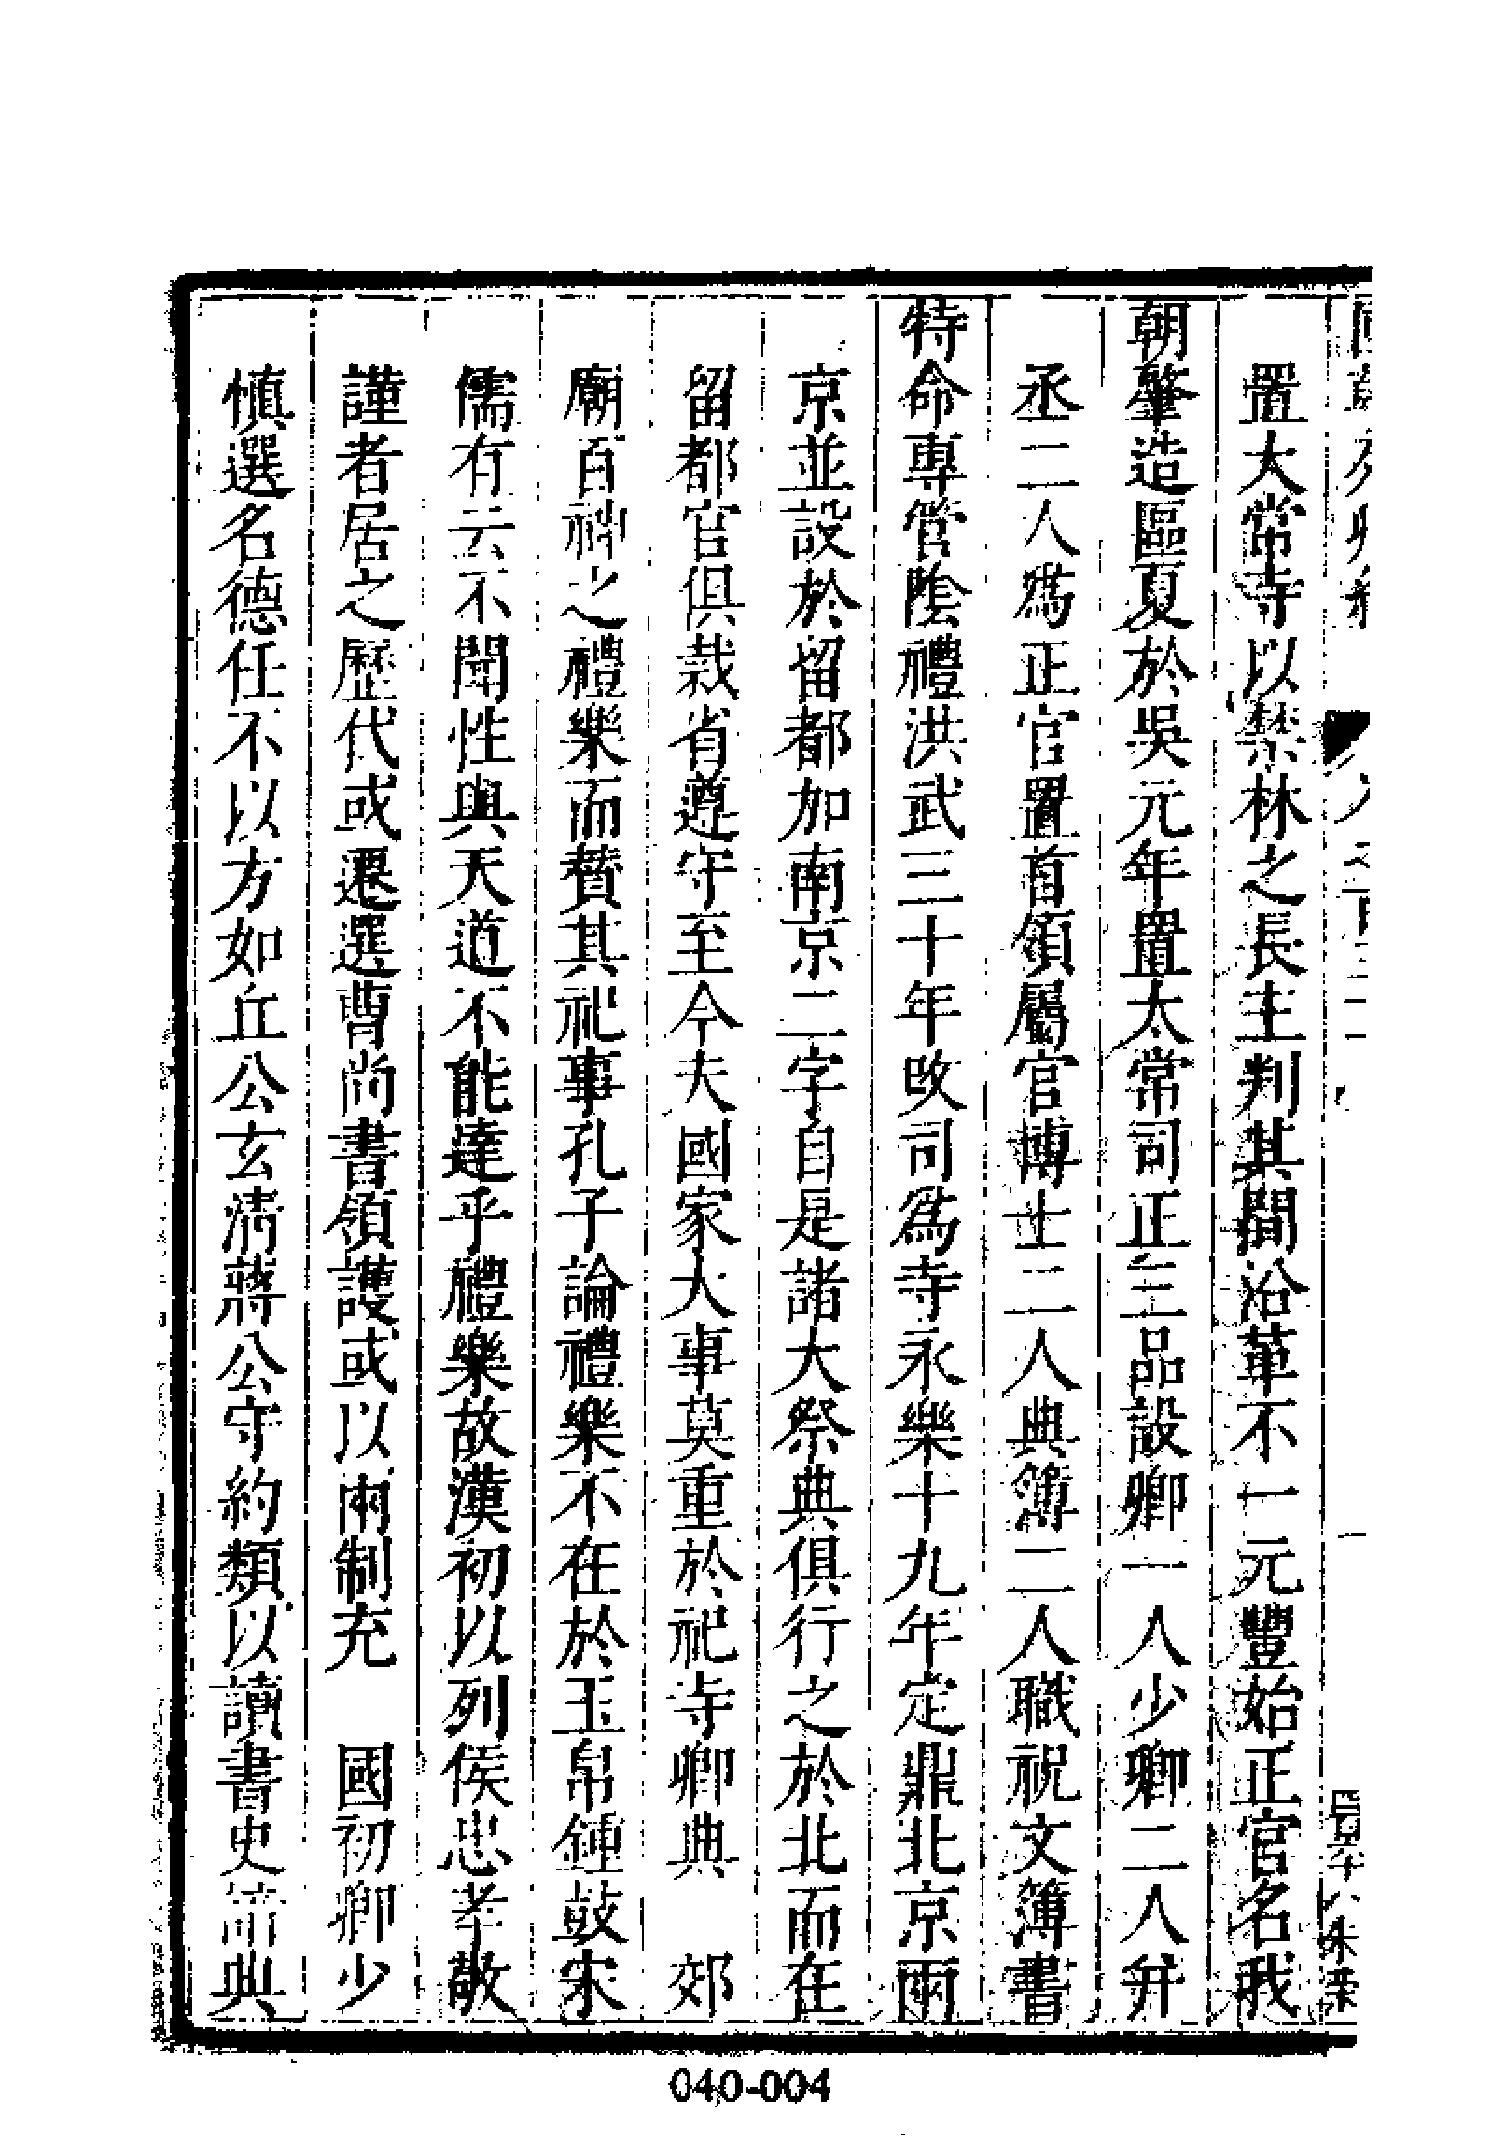 置大常寺以禁林之長主判其間沿革不一元豐始正官名我
朝肇造區夏於吳元年置太常司正三品設卿一人少卿二人并
丞二人為正官置首領屬官博士二人典簿二人職祝文簿書
特命專管陰禮洪武三十年改司為寺永樂十九年定鼎北京兩
京並設於留都加南京二字自是諸大祭典俱行之於北而在
留都官俱裁省遵守至今夫國家大事莫重於祀寺卿典　郊
廟百神之禮樂而贊其祀事孔子論禮樂不在於玉帛鍾鼓宋
儒有云不聞性與天道不能達乎禮樂故漢初以列侯忠孝敬
謹者居之歷代或遷選曹尚書領護或以兩制充　國初卿少
慎選名德任不以方如丘公玄清蔣公守約類以讀書史箭典
040-004